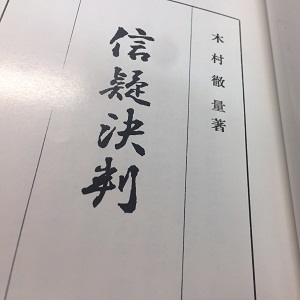 木村徹量著
信疑決判